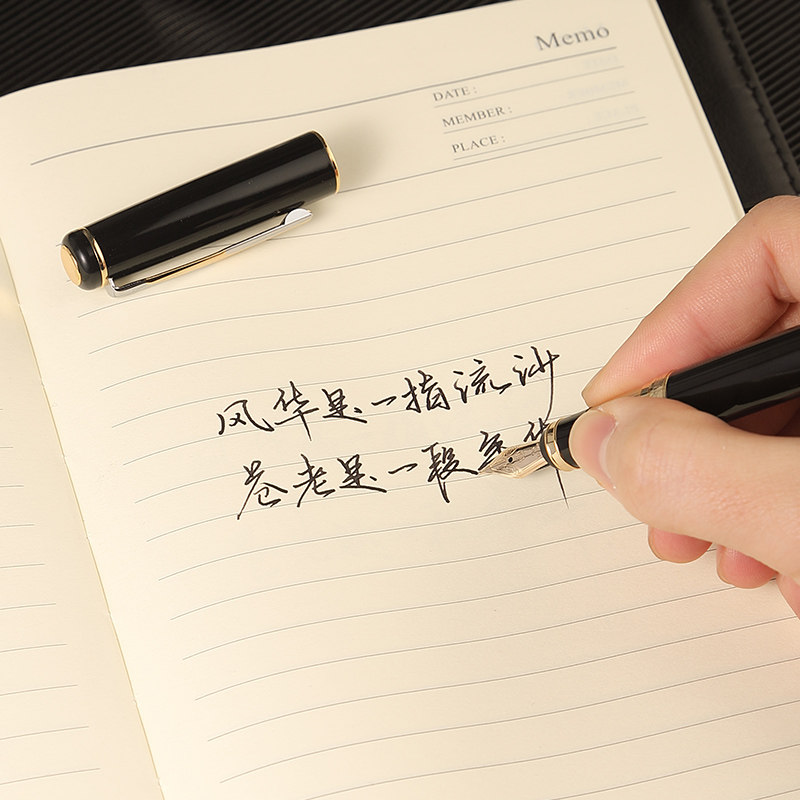 Memo
DATE :
MEMBER :
PLACE :
风华是一指流沙
苍老是一段年华